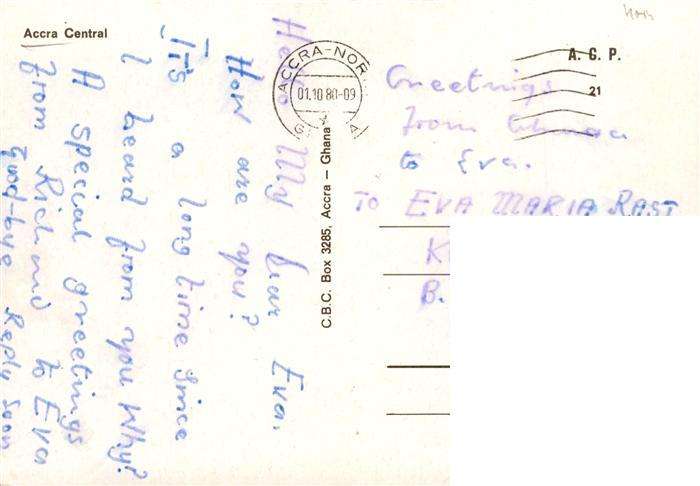 Accra Central
Hello My Dear Eva.
How are you?
It's a long time since
I heard from you Why?
A special greetings
from Richard to Eva
Good-bye Reply Soon
C.B.C. Box 3285, Accra – Ghana
ACCRA-NOR
01.10 80-09
A. G. P.
21
Greetings
from Ghana
to Eva.
TO EVA MARIA RAST
K
B.